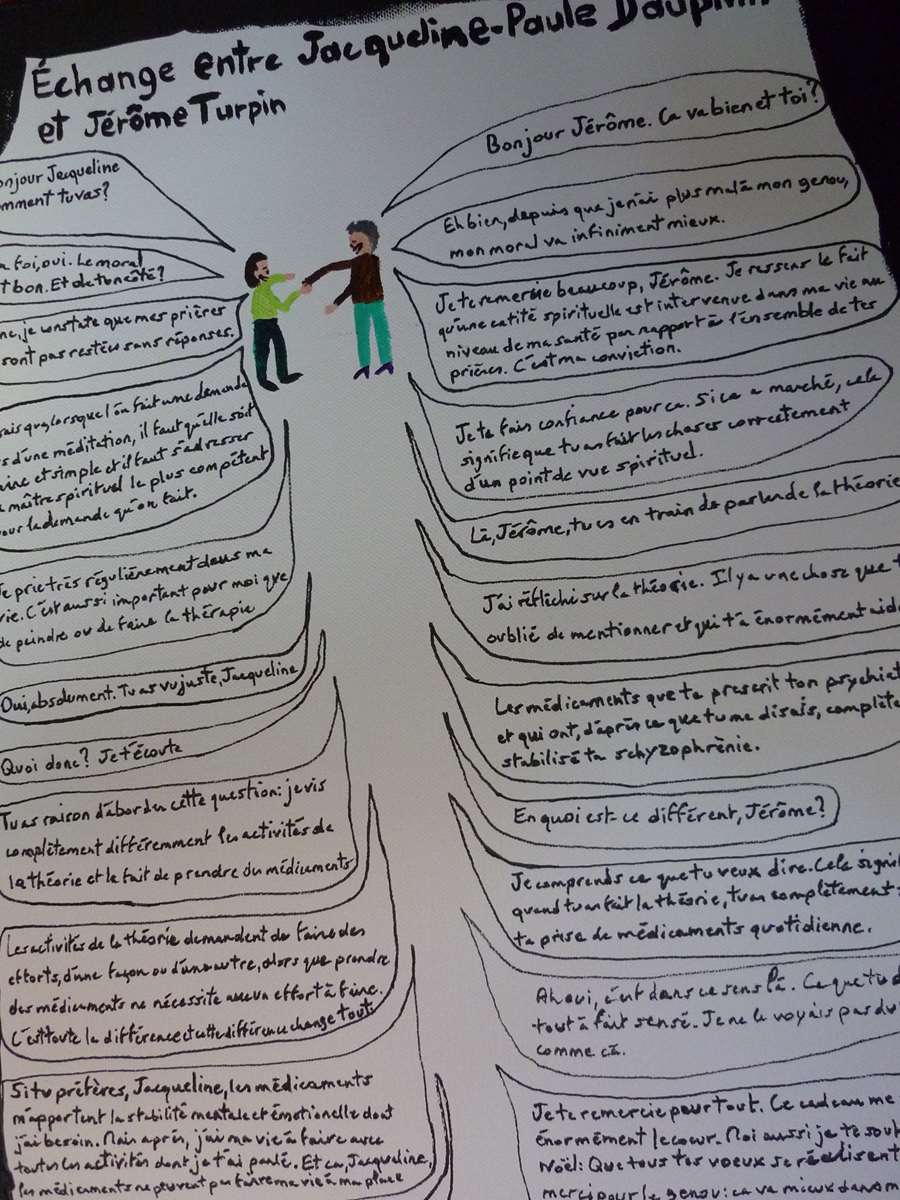 Échange entre Jacqueline-Paule Dauphin
et Jérôme Turpin
onjour Jacqueline
mment tu vas?
Bonjour Jérôme. Ca va bien et toi?
a foi, oui. Le moral
t bon. Et de ton côté?
Eh bien, depuis que je n'ai plus mal à mon genou,
mon moral va infiniment mieux.
ne, je constate que mes prières
sont pas restées sans réponses.
Je te remercie beaucoup, Jérôme. Je ressens le fait
qu'une entité spirituelle est intervenue dans ma vie au
niveau de ma santé par rapport à l'ensemble de tes
prières. C'est ma conviction.
sais que, lorsque l'on fait une demande
s d'une méditation, il faut qu'elle soit
et simple et il faut s'adresser
maître spirituel le plus compétent
our la demande qu'on fait.
Je te fais confiance pour ca. Si ca a marché, cela
signifie que tu as fait les choses correctement
d'un point de vue spirituel.
Je prie très régulièrement dans ma
vie. C'est aussi important pour moi que
de peindre ou de faire la thérapie
Là, Jérôme, tu es en train de parler de la théorie
Oui, absolument. Tu as vu juste, Jacqueline
J'ai réfléchi sur la théorie. Il y a une chose que t
oublié de mentionner et qui t'a énormément aid
Quoi donc? Je t'écoute
Les médicaments que te prescrit ton psychiat
et qui ont, d'après ce que tu me disais, complète
stabilisé ta schyzophrènie.
Tu as raison d'aborder cette question: je vis
complètement différemment les activités de
la théorie et le fait de prendre du médicaments
En quoi est-ce différent, Jérôme?
Les activités de la théorie demandent de faire des
efforts, d'une façon ou d'une autre, alors que prendre
des médicaments ne nécessite aucun effort à faire.
C'est toute la différence et cette différence change tout.
Je comprends ce que tu veux dire. Cela signi
quand tu as fait la théorie, tu as complètement
ta prise de médicaments quotidienne.
Si tu préfères, Jacqueline, les médicaments
m'apportent la stabilité mentale et émotionelle dont
j'ai besoin. Mais après, j'ai ma vie à faire avec
toutes les activités dont je t'ai parlé. Et ca, Jacqueline,
les médicaments ne peuvent pas faire ma vie à ma place
Ah oui, c'est dans ce sens là. Ce que tu d
tout à fait sensé. Je ne le voyais pas du
comme cà.
Je te remercie pour tout. Ce cadeau me
énormément le coeur. Moi aussi je te sou
Noël: Que tous tes voeux se réalisent
merci pour le genou: ca va mieux dans m